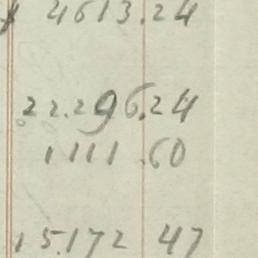 4613.24
22.296.24
1111.60
15.172 47